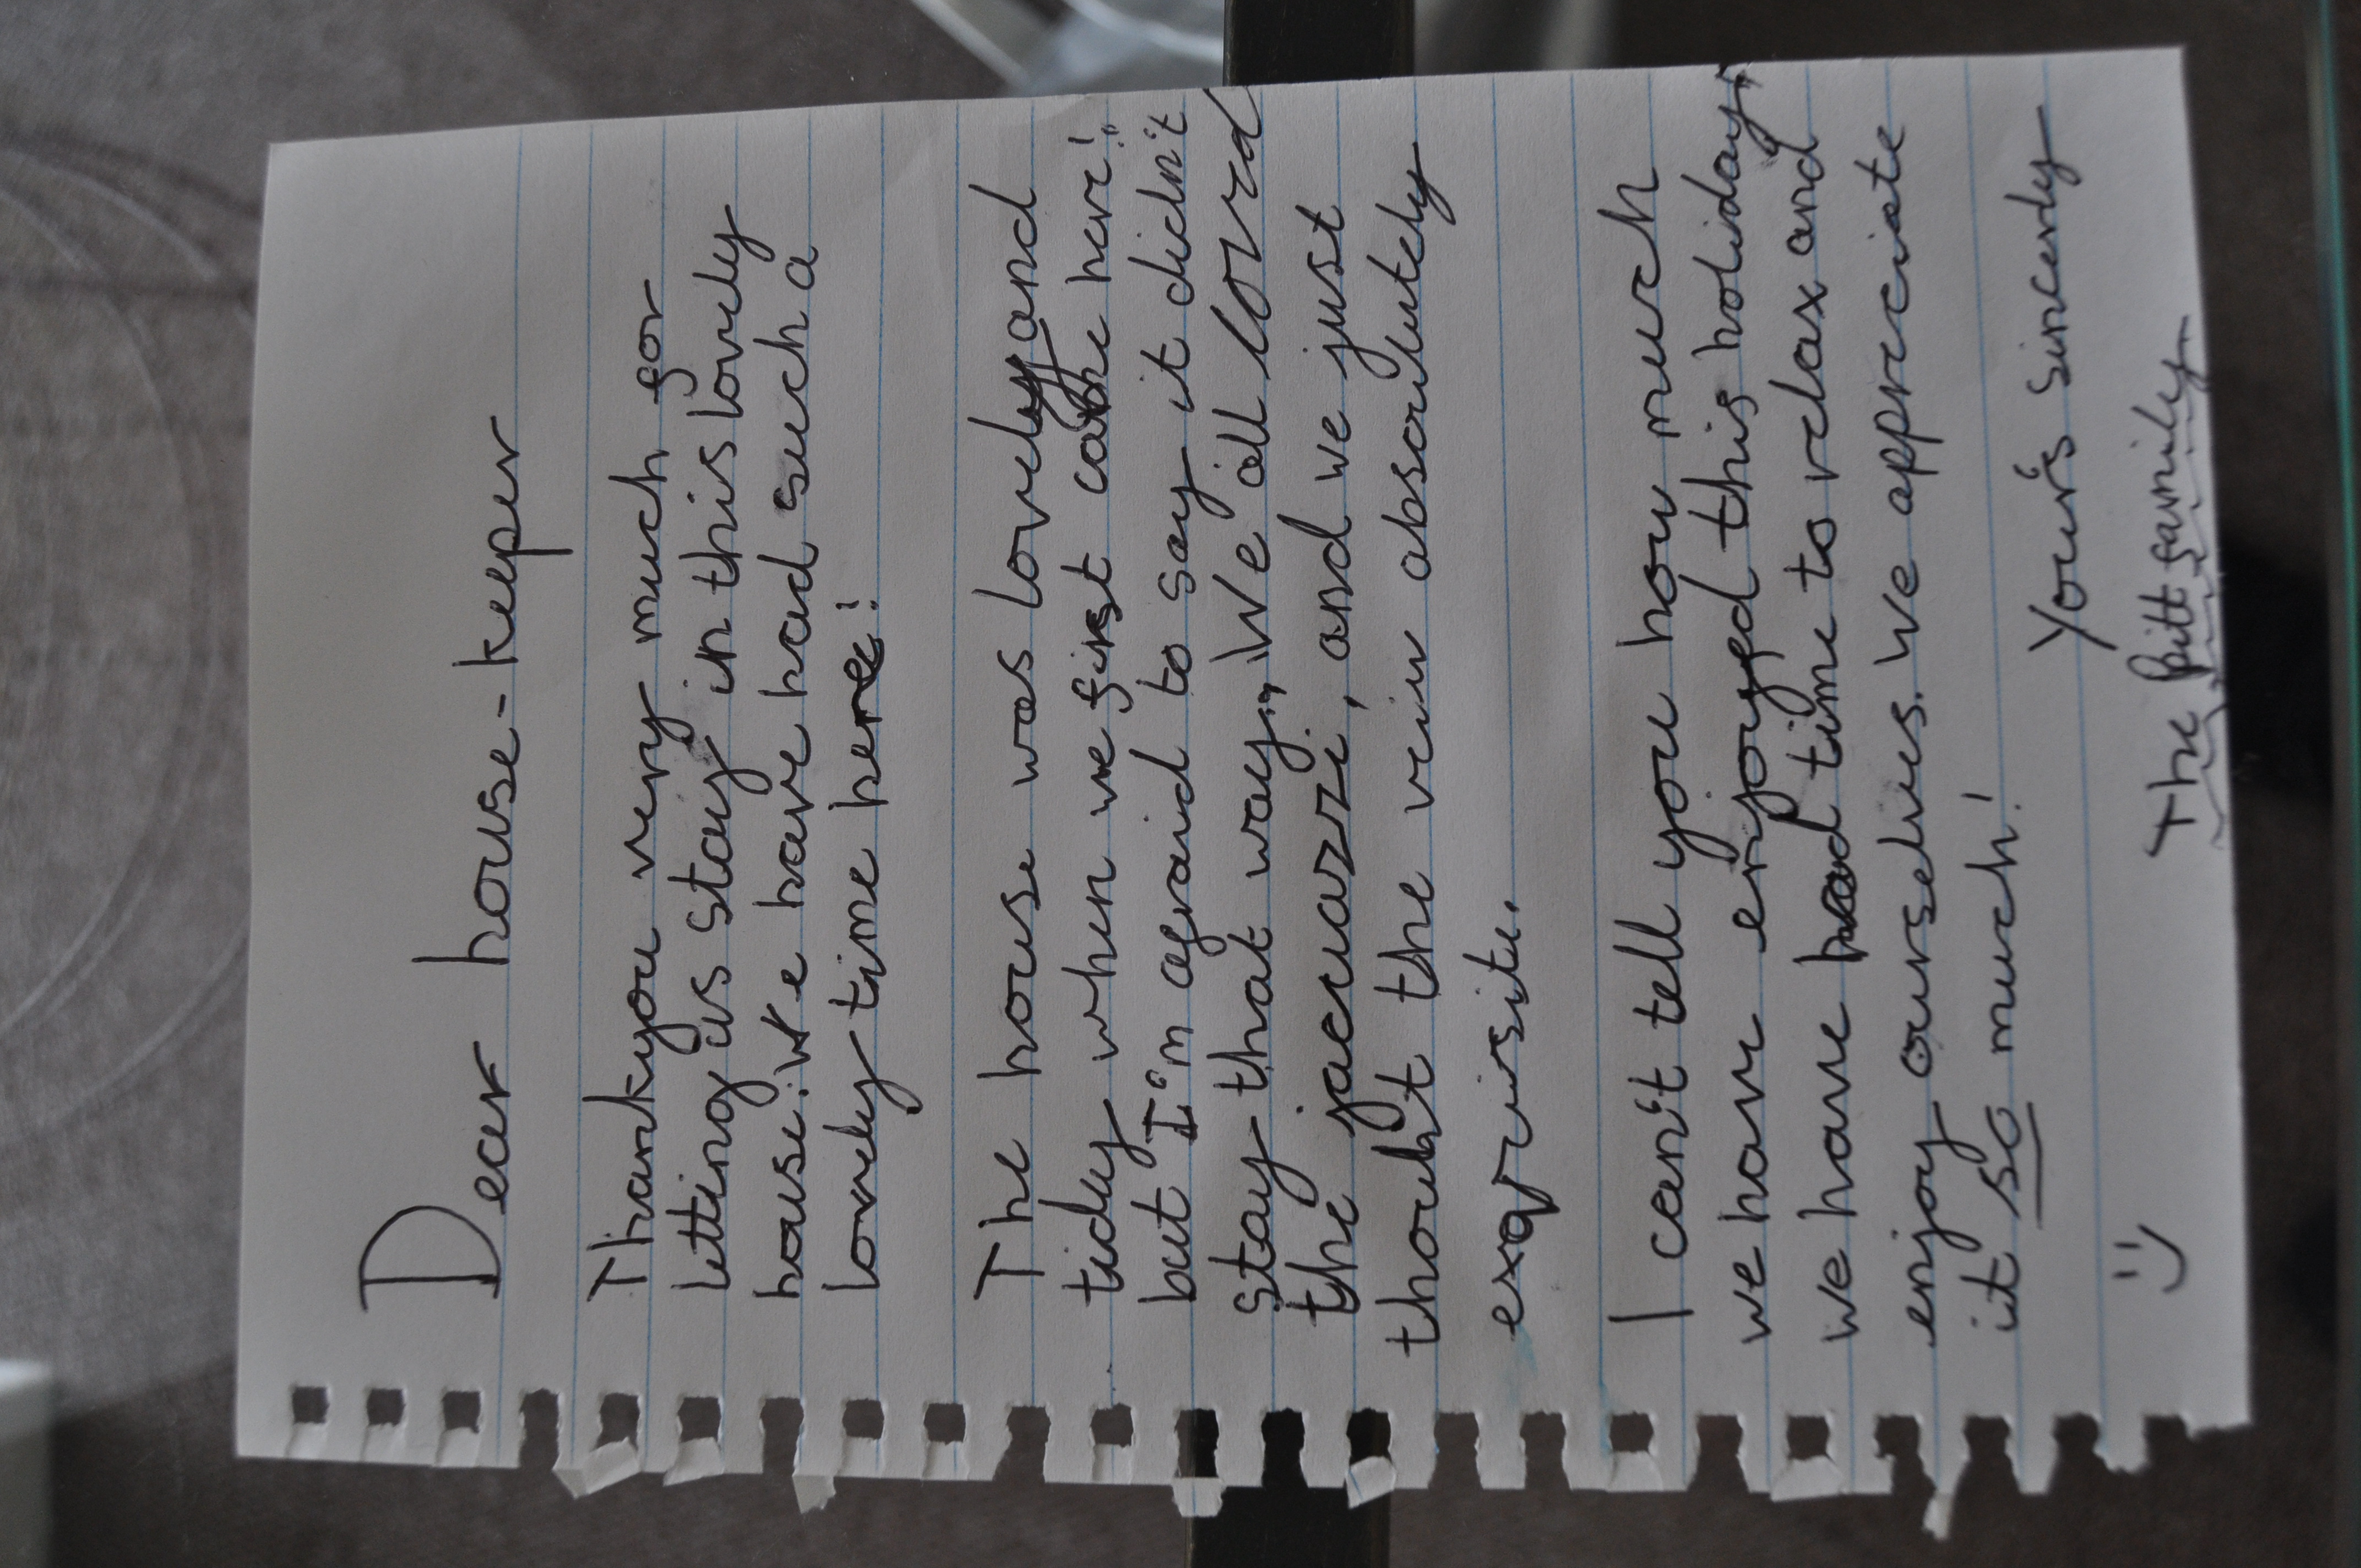 Dear house-keeper
Thankyou very much for
letting us stay in this lovely
house. We have had such a
lovely time here!
The house was lovely and
tiday when we first came here!
but I'm afraid to say it didn't
stay that way, We all loved
the jacuazzi, and we just
thourht the veiw absoulutely
exqusite.
I can't tell you how much
we have enjoyed this holiday,
we have had time to relax and
enjoy ourselves. We appreciate
it so much!
Your's sincerely
The Pitt family